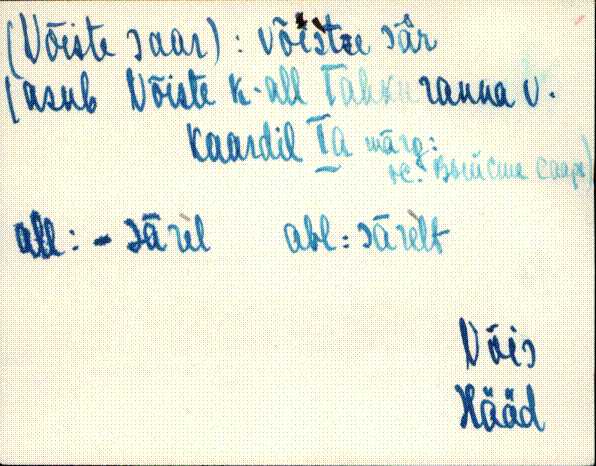 (Võiste saar) : võistɛ sār
(asub Võiste k-all Tahkuranna v.
Kaardil Ia märg:
ос. Выйсте саар)
all: - särèl abl: särèlt
Võis
Hääd